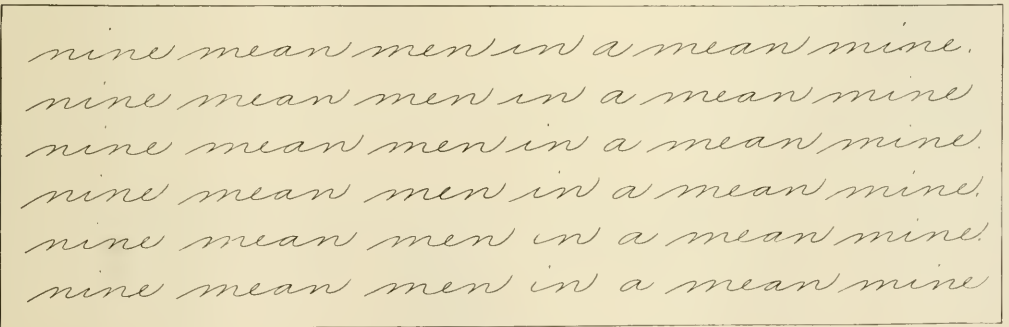 nine mean men in a mean mine.
nine mean men in a mean mine
nine mean men in a mean mine.
nine mean men in a mean mine.
nine mean men in a mean mine.
nine mean men in a mean mine